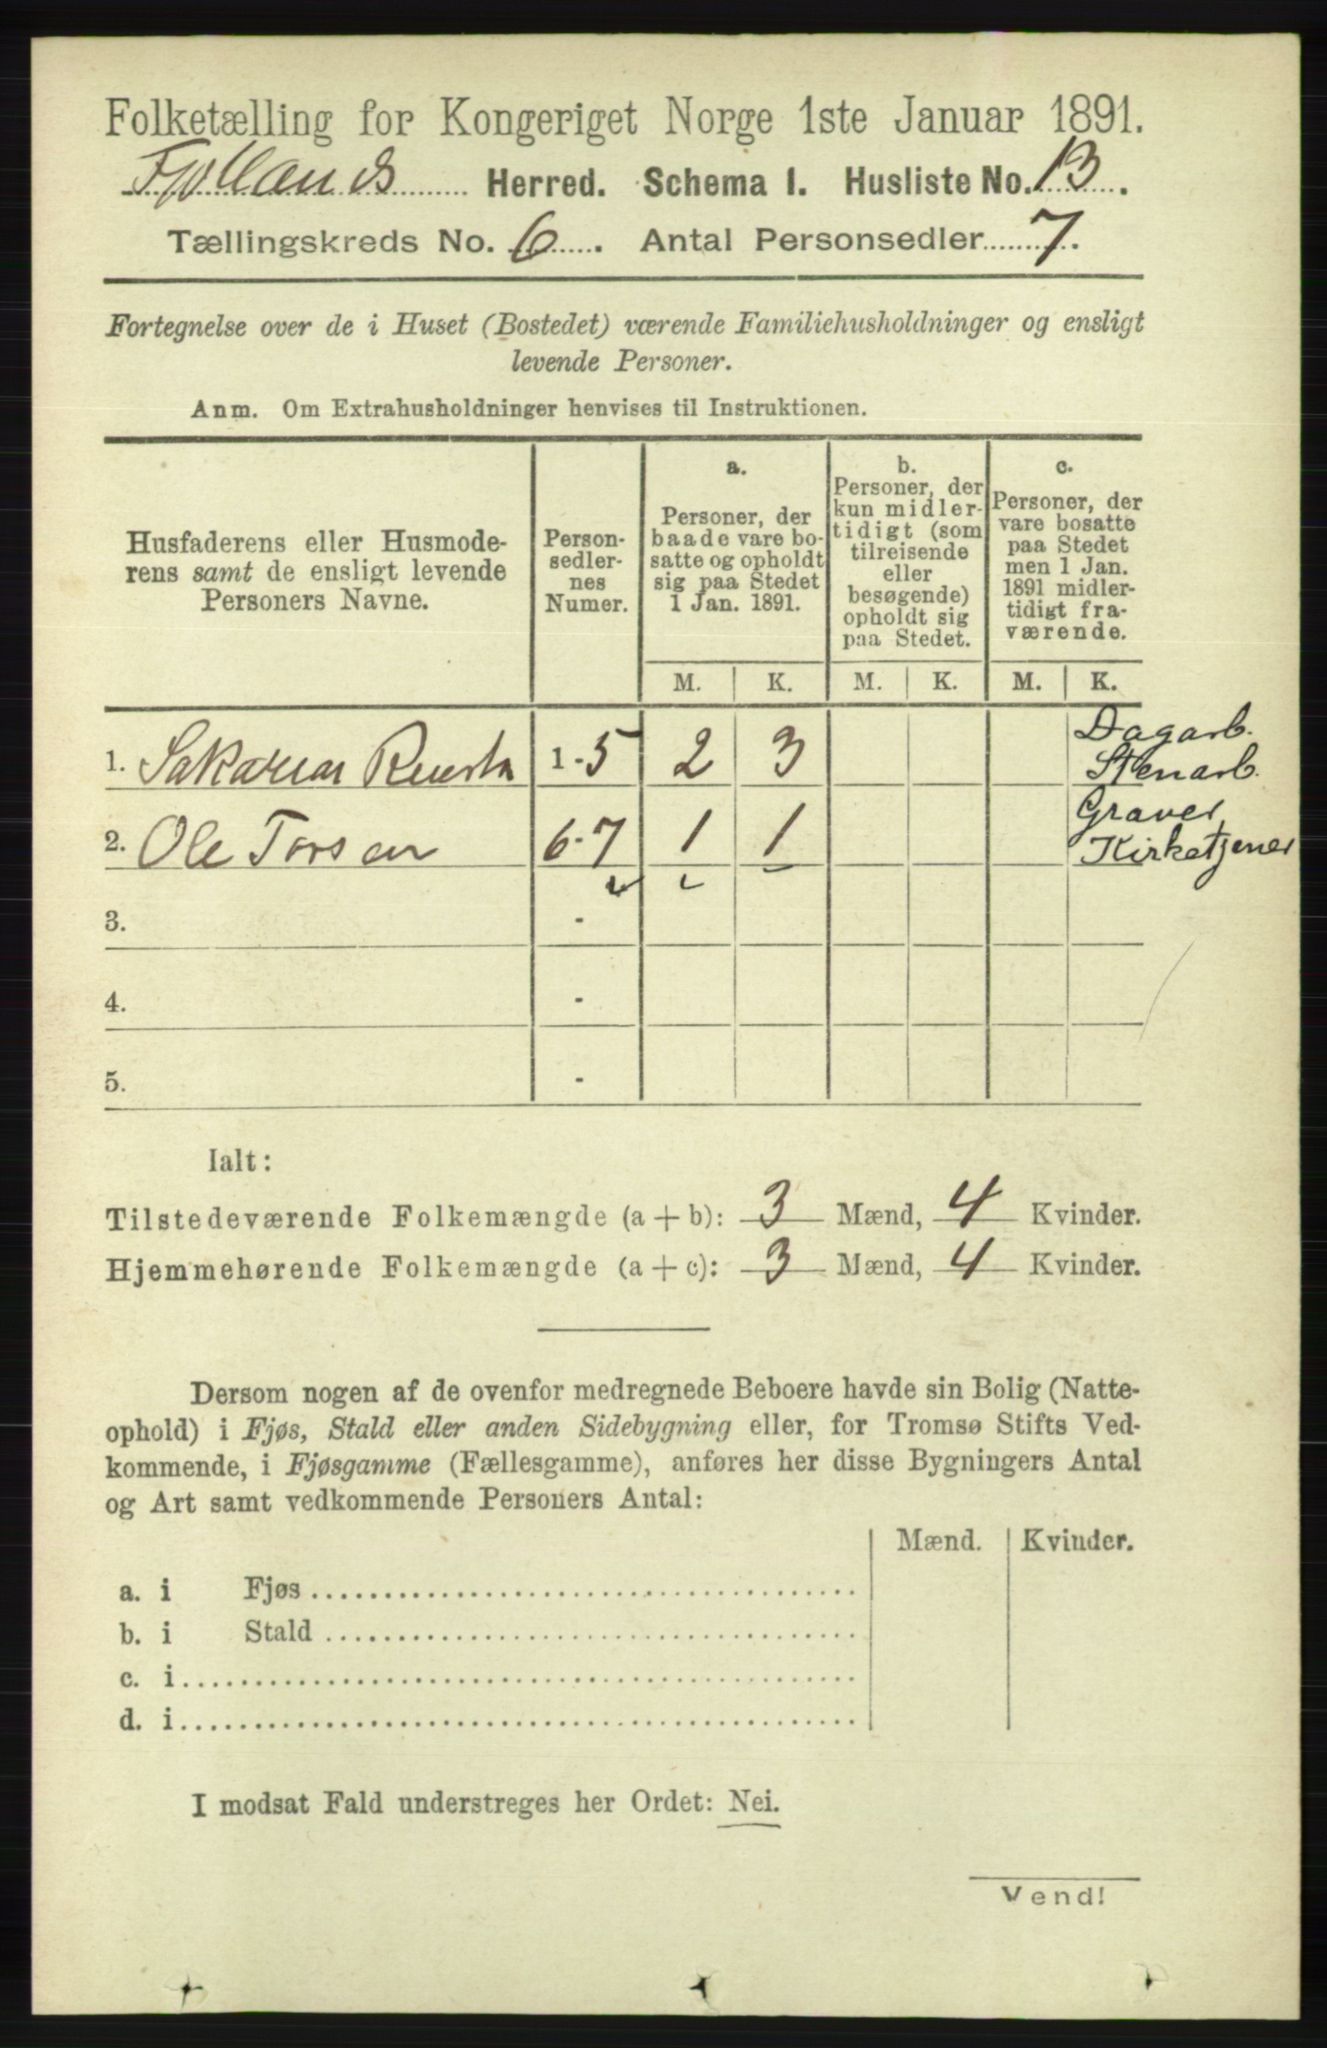 Folketælling for Kongeriget Norge 1ste Januar 1891.
Fjotlands Herred. Schema I. Husliste No. 13.
Tællingskreds No. 6. Antal Personsedler 7.
Fortegnelse over de i Huset (Bostedet) værende Familiehusholdninger og ensligt
levende Personer.
Anm. Om Extrahusholdninger henvises til Instruktionen.
Husfaderens eller Husmode-
rens samt de ensligt levende
Personers Navne.
Person-
sedler-
nes
Numer.
a.
Personer, der
baade vare bo-
satte og opholdt
sig paa Stedet
1 Jan. 1891.
b.
Personer, der
kun midler-
tidigt (som
tilreisende
eller
besøgende)
opholdt sig
paa Stedet.
c.
Personer, der
vare bosatte
paa Stedet
men 1 Jan.
1891 midler-
tidigt fra-
værende.
M. K. M. K. M. K.
1. Sakarias 1-5 2 3 Dagarb.
Stenarb.
2. Ole Torsen 6-7 1 1 Graver,
Kirketjener
3. -
4. -
5. -
Ialt:
Tilstedeværende Folkemængde (a + b): 3 Mænd, 4 Kvinder.
Hjemmehørende Folkemængde (a + c): 3 Mænd, 4 Kvinder.
Dersom nogen af de ovenfor medregnede Beboere havde sin Bolig (Natte-
ophold) i Fjøs, Stald eller anden Sidebygning eller, for Tromsø Stifts Ved-
kommende, i Fjøsgamme (Fællesgamme), anføres her disse Bygningers Antal
og Art samt vedkommende Personers Antal:
Mænd. Kvinder.
a. i Fjøs
b. i Stald
c. i
d. i
I modsat Fald understreges her Ordet: Nei.
Vend!